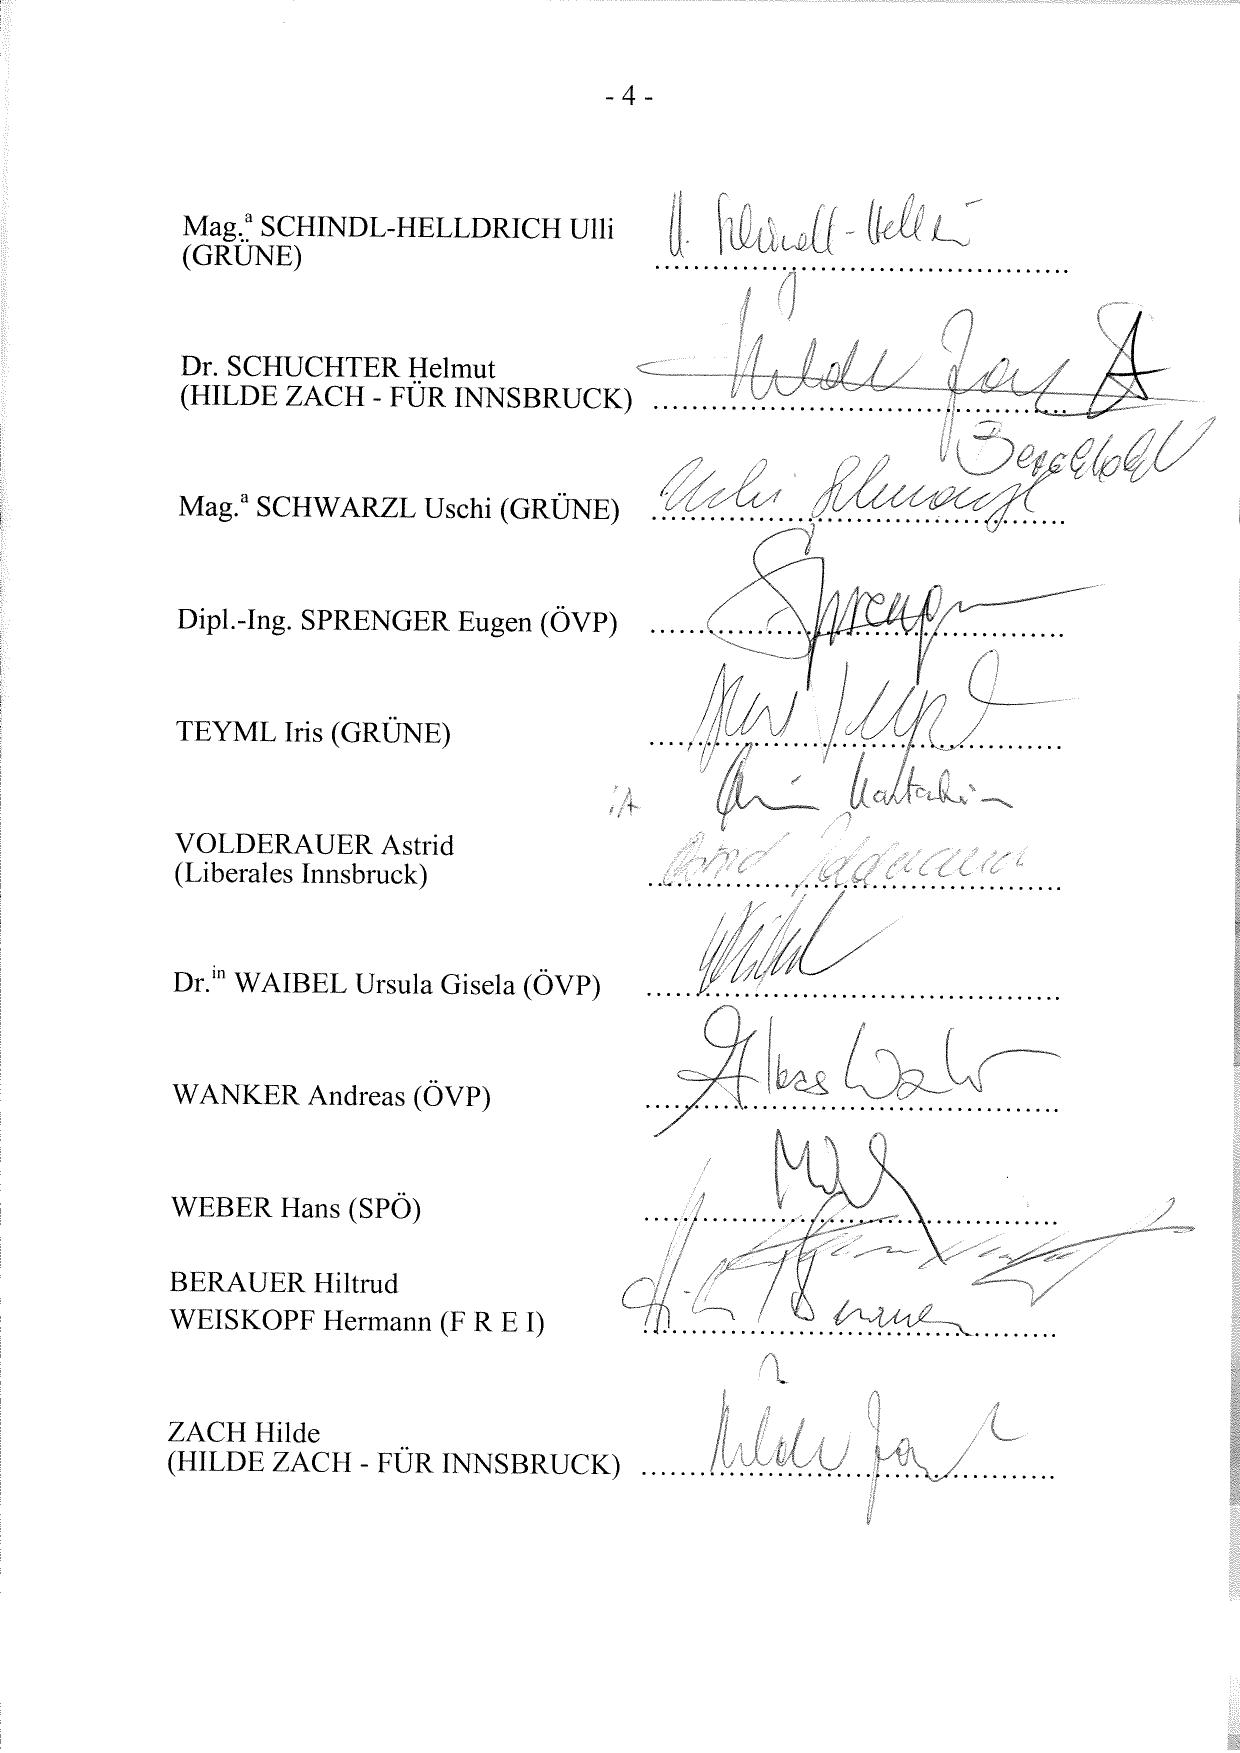 - 4 -
Mag.ª SCHINDL-HELLDRICH Ulli
U. Schindl-Hell
(GRÜNE)
Dr. SCHUCHTER Helmut
Hilde Zach
(HILDE ZACH - FÜR INNSBRUCK)
Mag.ª SCHWARZL Uschi (GRÜNE)
Uschi Schwarzl
Dipl.-Ing. SPRENGER Eugen (ÖVP)
Sprenger
TEYML Iris (GRÜNE)
Iris Teyml
iA
VOLDERAUER Astrid
(Liberales Innsbruck)
Astrid Volderauer
Dr.in WAIBEL Ursula Gisela (ÖVP)
Waibel
WANKER Andreas (ÖVP)
WEBER Hans (SPÖ)
BERAUER Hiltrud
WEISKOPF Hermann (F R E I)
Berauer
ZACH Hilde
(HILDE ZACH - FÜR INNSBRUCK)
Hilde Zach